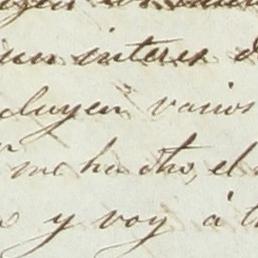 un interes
duyen varios
me ha dho, el
y voy á